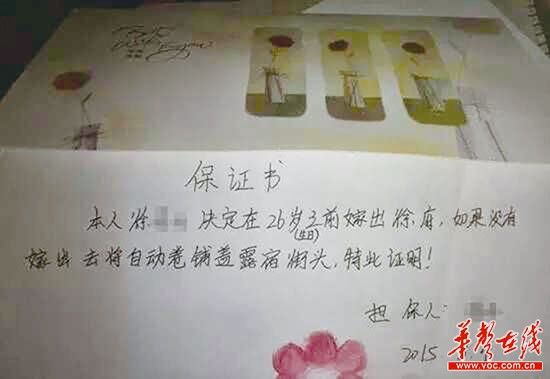 Best wish for you
保证书
本人徐 决定在26岁之前嫁出徐府，如果没有
(生日)
嫁出去将自动卷铺盖露宿街头，特此证明！
担保人：
2015
华声在线
www.voc.com.cn